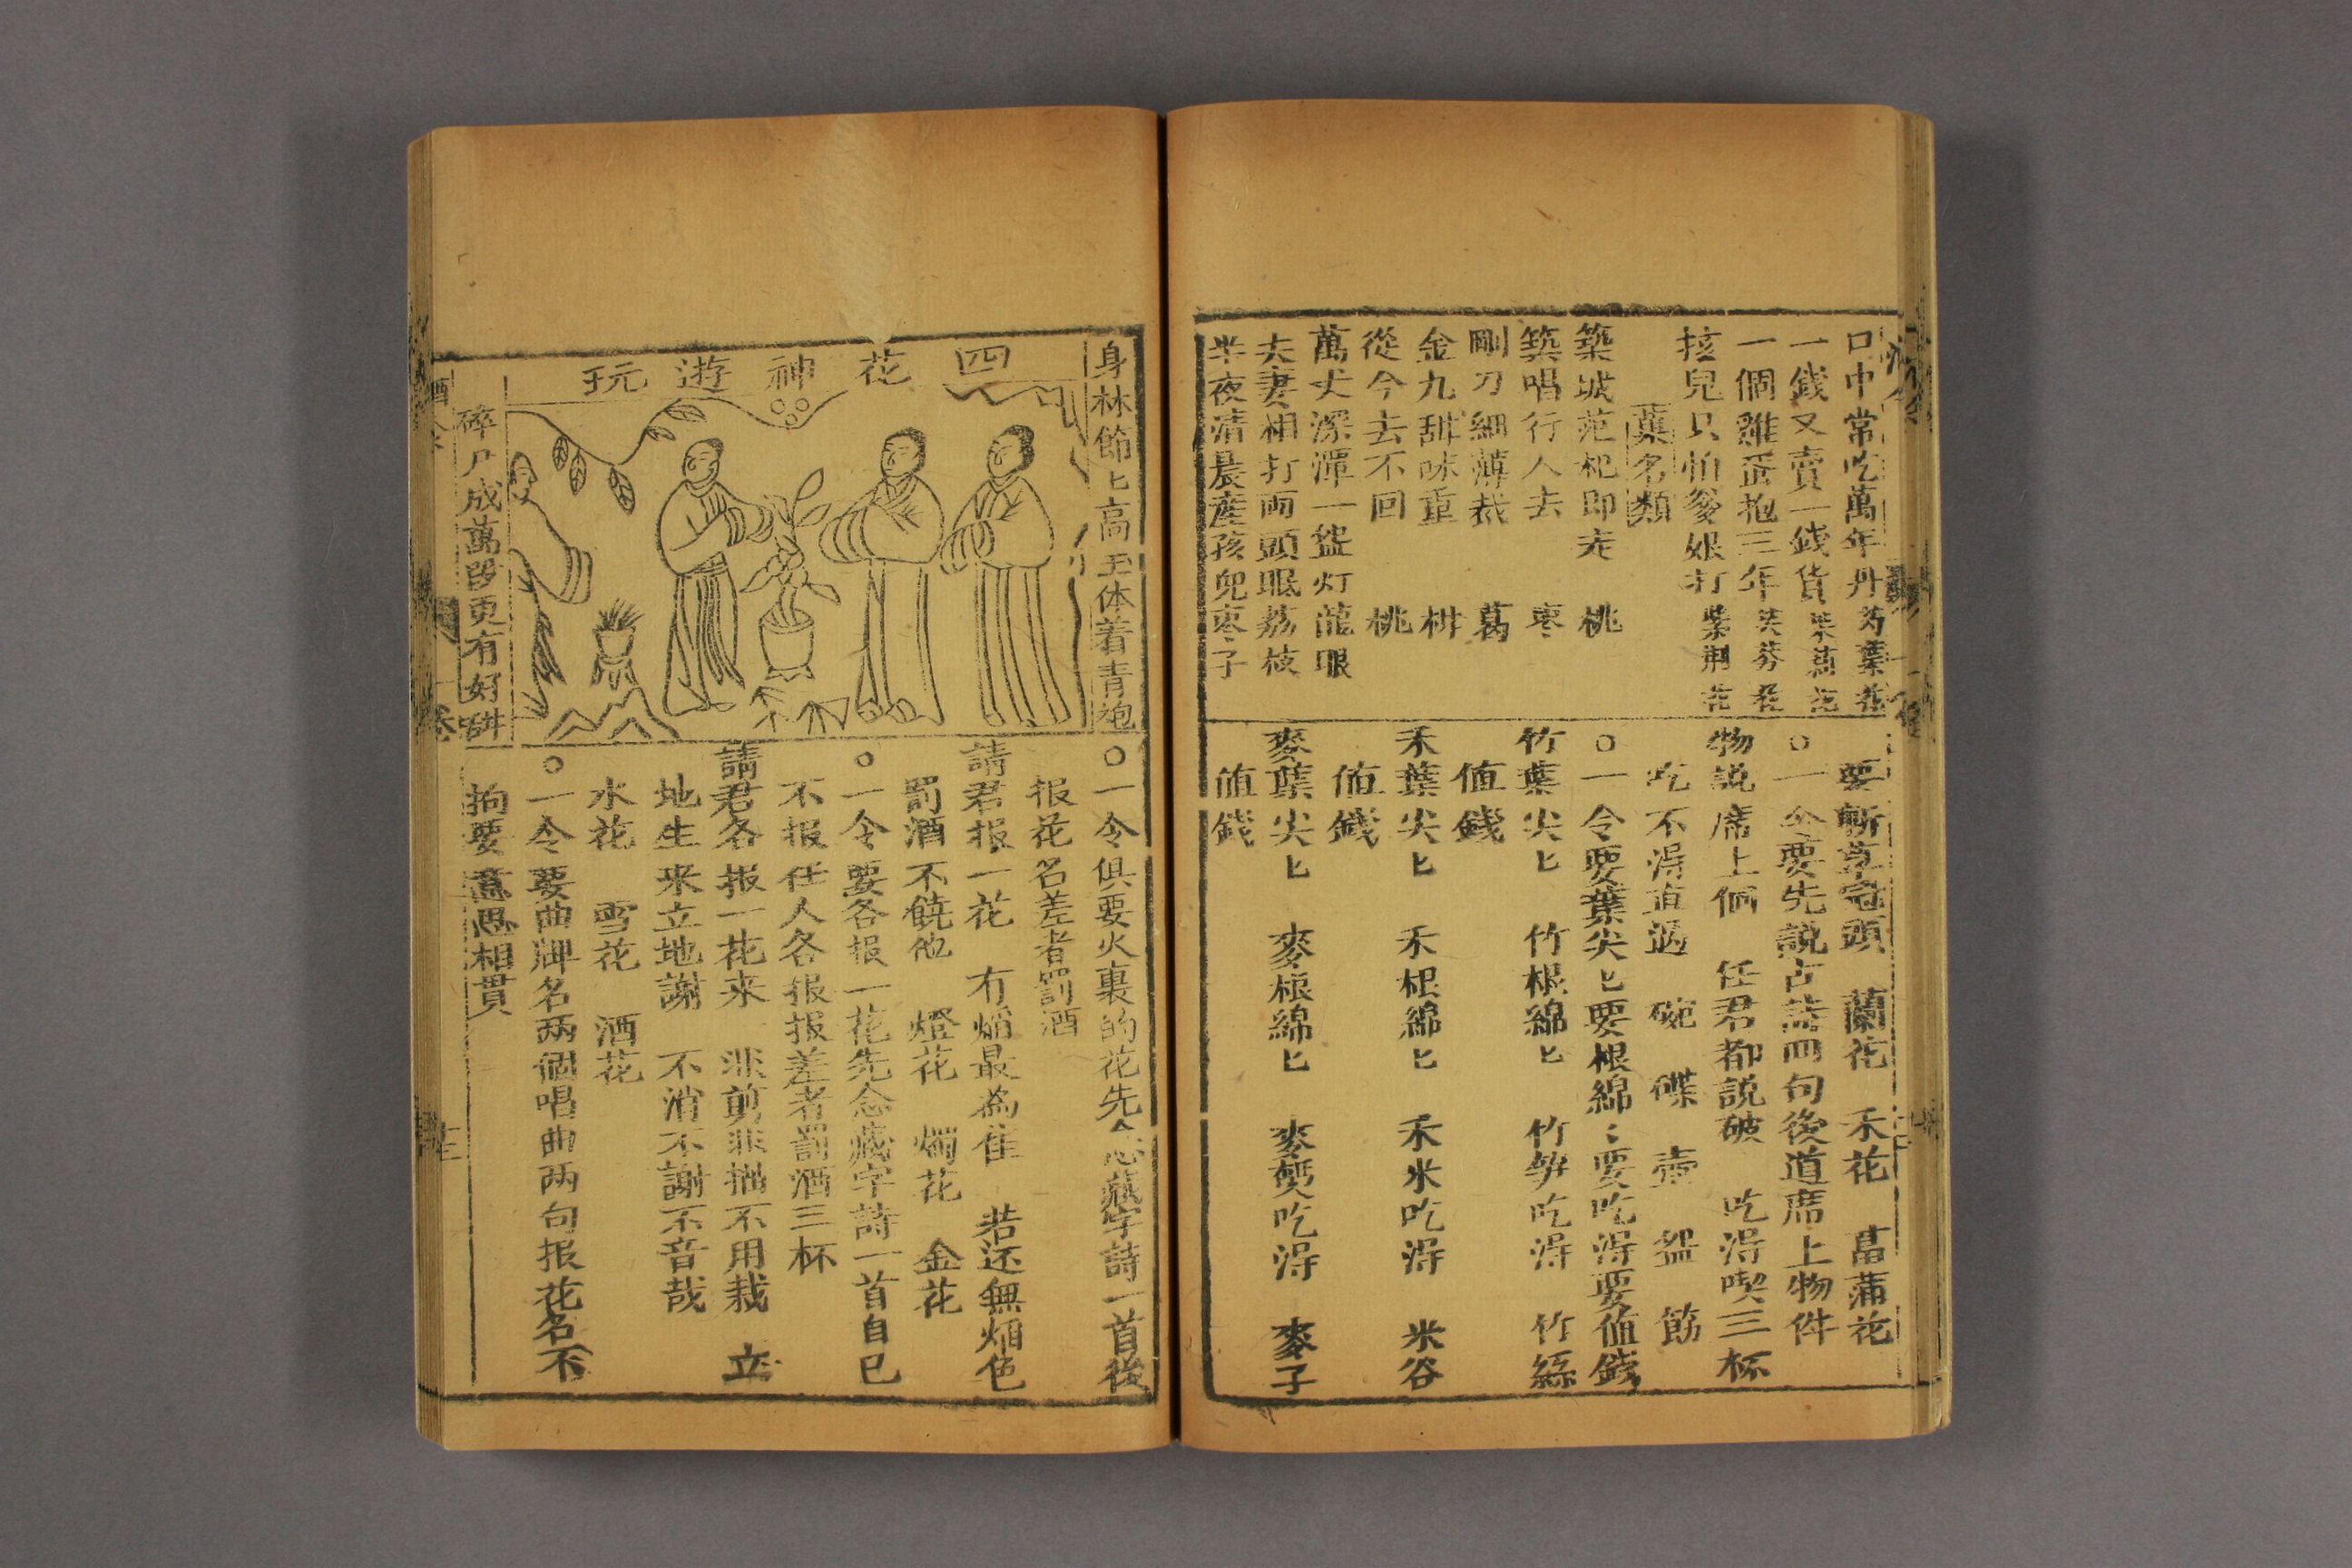 口中常吃萬年丹 芍葉花
一錢又賣一錢貨
一個雞蛋抱三年 芙蓉花
孩兒只怕爹娘打 紫荆花
葉名類
築城范杞即走 桃
築唱行人去 枣
剛刀細薄裁 葛
金九甜味重 柑
從今去不回 桃
萬丈深潭一盞灯 龍眼
夫妻相打両頭眠 荔枝
半夜清晨産孩兒 枣子
要斬草冠頭 蘭花 禾花 菖蒲花
○一令要先説古詩四句後道席上物件
物説席上個 任君都説破 吃淂喫三杯
吃不淂直過 碗 碟 壺 盤 筯
○一令要葉尖匕要根綿匕要吃淂要值錢
竹葉尖匕 竹根綿匕 竹笋吃淂 竹絲
值錢
禾葉尖匕 禾根綿匕 禾米吃淂 米谷
值錢
麥葉尖匕 麥根綿匕 麥麪吃淂 麥子
值錢
身林節匕高玉体着青袍
四花神遊玩
碎尸成萬段更有好
○一令俱要火裏的花先念藏字詩一首後
报花名差者罰酒
請君报一花 有焰最為佳 若还無焰色
罰酒不饒他 燈花 燭花 金花
○一令要各报一花先念藏字詩一首自已
不报任人各报报差者罰酒三杯
請君各报一花来 非剪非描不用栽 立
地生来立地謝 不消不謝不音哉
水花 雪花 酒花
○一令要曲牌名两個唱曲两句报花名不
拘要意思相貫